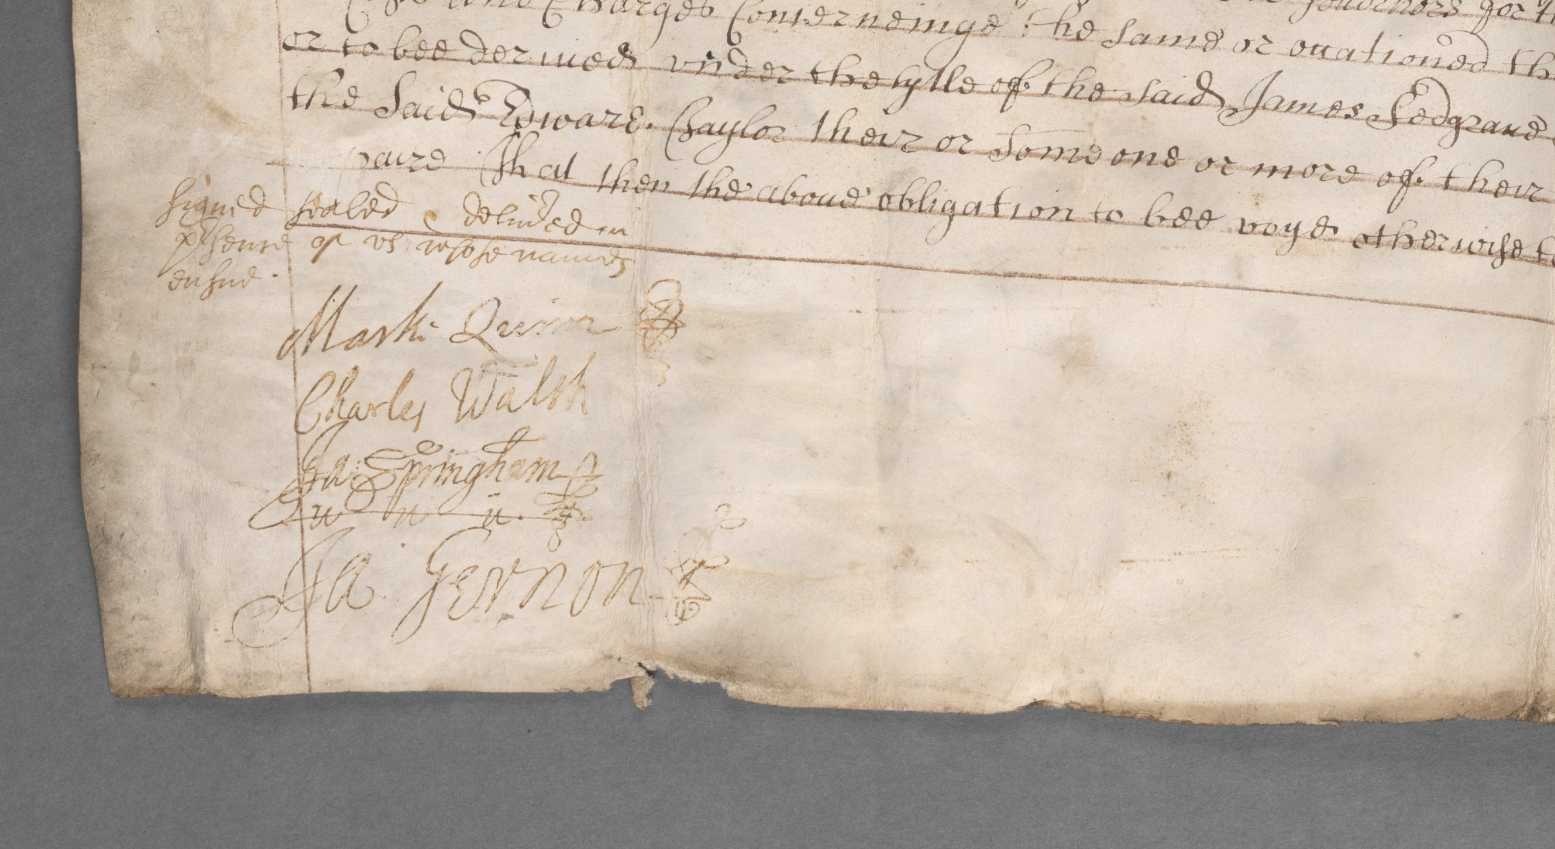 and Charges Conserneinge the same or occationed th
or to bee derived vnder the tytle of the said James Sedgraue
the Said Edward Chaylor their or Some one or more of their
paire That then the aboue obligation to bee voyd otherwise to
Signed sealed & deliu'ed in
p'sence of vs whose names
ensue.
Marke Quinn
Charles Walsh
Ja: Springham
Ja. Gernon